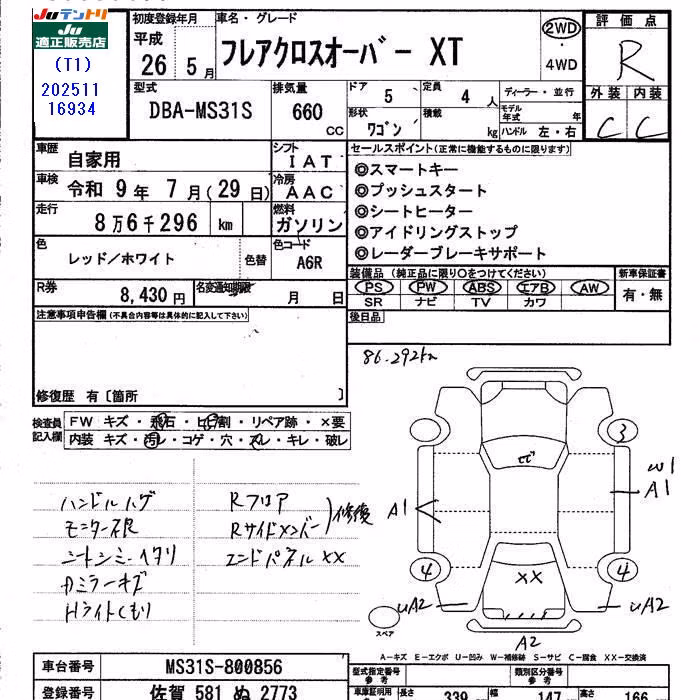 Juテントリ
Ju
適正販売店
(T1)
202511
16934
初度登録年月
平成
26 5月
車名・グレード
フレアクロスオーバー XT
2WD
・
4WD
評価点
R
外装 内装
C C
型式
DBA-MS31S
排気量
660
CC
ドア
5
定員
4 人
形状
ワゴン
積載
kg
ディーラー・並行
モデル年式 年
ハンドル 左・右
車歴
自家用
シフト
IAT
車検
令和 9年 7月(29日)
冷房
AAC
走行
8万6千296 km
燃料
ガソリン
色
レッド/ホワイト
色替
色コード
A6R
R券
8,430円
名変通知期限
月 日
セールスポイント(正常に機能するものに限ります)
◎スマートキー
◎プッシュスタート
◎シートヒーター
◎アイドリングストップ
◎レーダーブレーキサポート
装備品(純正品に限り○をつけてください)
PS PW ABS エアB AW
SR ナビ TV カワ
新車保証書
有・無
後日品
注意事項申告欄(不具合内容等は具体的に記入して下さい)
修復歴 有〔箇所 〕
86.292km
検査員記入欄
FW キズ・飛石・ヒビ割・リペア跡・×要
内装 キズ・汚レ・コゲ・穴・スレ・キレ・破レ
ハンドルハゲ
モニター不良
シートシミ・ヘタリ
Dミラーキズ
Hライトくもり
Rフロア
Rサイドメンバー
修復
エンドパネルXX
3
W1
A1
A1
4
4
XX
UA2
UA2
A2
スペア
A-キズ E-エクボ U-凹み W-補修跡 S-サビ C-腐食 XX-交換済
車台番号
MS31S-800856
登録番号
佐賀 581 ぬ 2773
型式指定番号
参考
類別区分番号
参考
車車証明用
長さ
339
幅
147
高さ
166